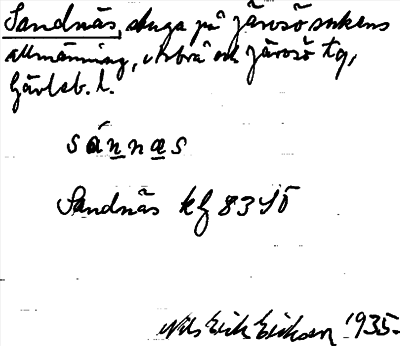 Sandnäs, stuga på Järvsö sockens
allmänning, Arbrå och Järvsö tg,
Gävleb. l.
sánnas
Sandnäs kf 83 SÖ
Nils Erik Erikson 1935.